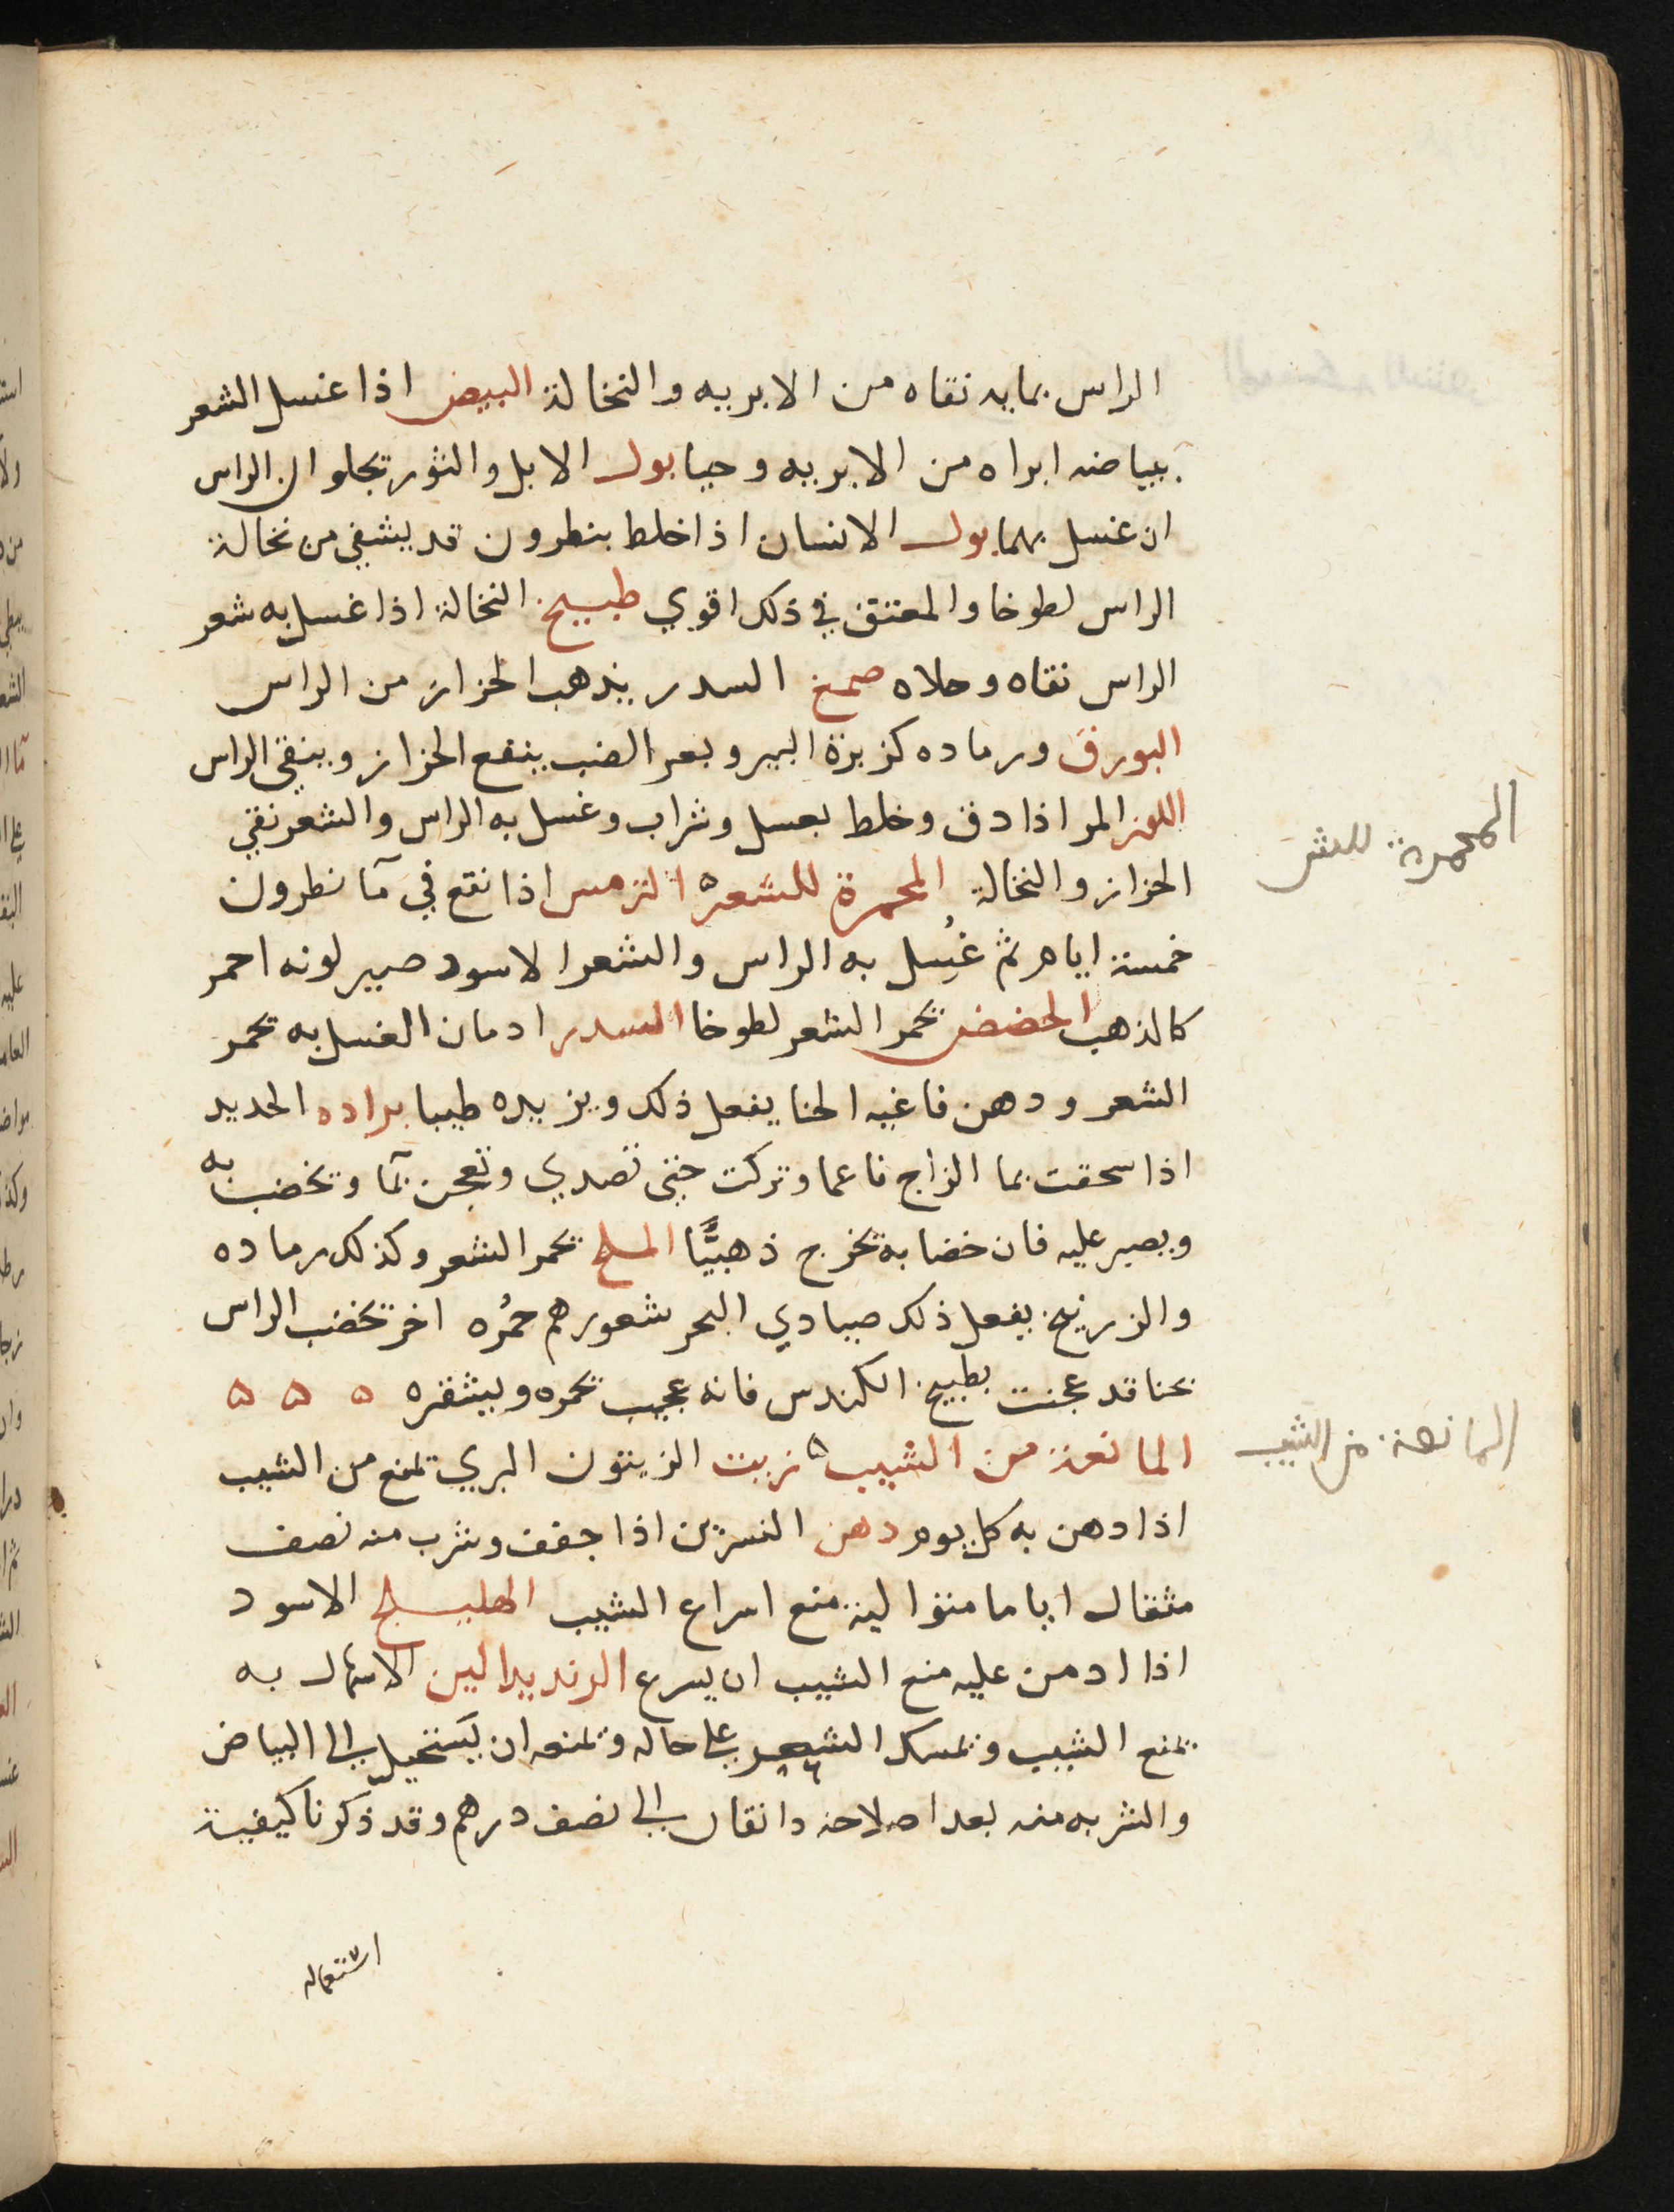 الراس بمايه نقاه من الابريه والنخالة البيض اذا غسل الشعر
ببياضه ابراه من الابريه وحيا بول الابل والثور تجلوان الراس
ان غسل بهما بول الانسان اذا خلط بنطرون قد يشفي من نخالة
الراس لطوخا والمعتق في ذلك اقوي طبيخ النخالة اذا غسل به شعر
الراس نقاه وجلاه صمغ السدر يذهب الحزاز من الراس
البورق ورماده كزبرة البير وبعر الضب ينفع الحزاز وينقي الراس
اللوز المر اذا دق وخلط بعسل وشراب وغسل به الراس والشعر نقي
الحزاز والنخالة المحمرة للشعر ه الترمس اذا نقع في مآ نطرون
خمسة ايام ثم غُسل به الراس والشعر الاسود صير لونه احمر
كالذهب الحضض يحمر الشعر لطوخا السدر ادمان الغسل به يحمر
الشعر ودهن فاغيه الحنا يفعل ذلك ويزيده طيبا براده الحديد
اذا سحقت بما الزاج ناعما وتركت حتى تصدي وتعجن بمآ وتخضب به
ويصبر عليه فان خضابه تخرج ذهبيًّا الملح يحمر الشعر وكذلك رماده
والزرنيخ يفعل ذلك صيادي البحر شعورهم حمُره اخر تخضب الراس
بحنا قد عجنت بطبيخ الكندس فانه عجيب يحمره ويشقره ه ه ه
المانعة من الشيب ه زيت الزيتون البري يمنع من الشيب
اذا دهن به كل يوم دهن النسرين اذا جفف وشرب منه نصف
مثقال اياما متوالية منع اسراع الشيب الهليلج الاسود
اذا ادمن عليه منع الشيب ان يسرع الرند يدالين الاسهال به
يمنع الشيب ويمسك الشعر علي حاله ويمنعه ان يستحيل الي البياض
والشربه منه بعد اصلاحه دانقان الي نصف درهم وقد ذكرنا كيفية
استعماله
المحمرة للشعر
المانعة من الشيب